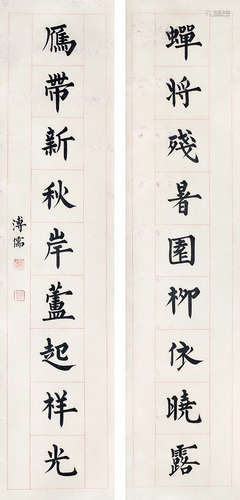 蟬将殘暑園柳依曉露
鴈帶新秋岸蘆起祥光
溥儒